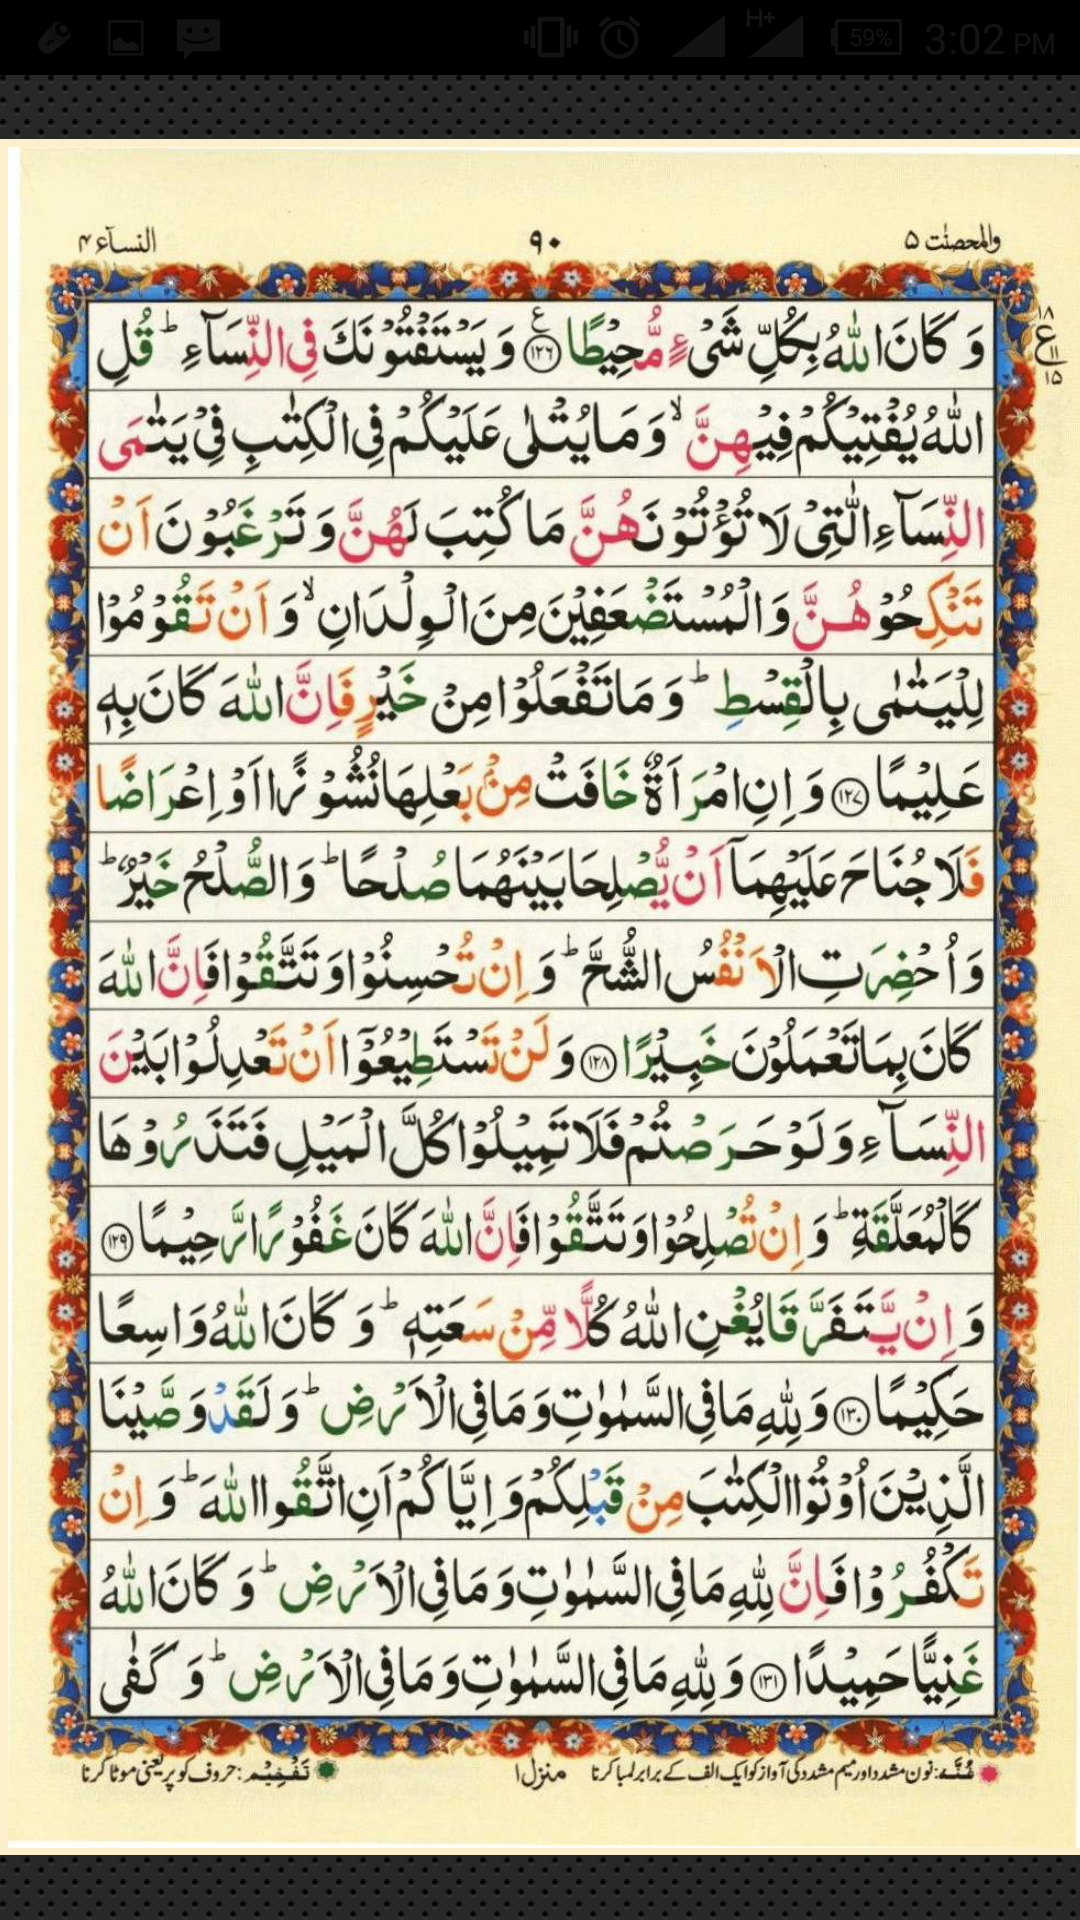 H+
59%
3:02 PM
والمحصنٰت ۵
۹۰
النسآء ۴
۱۸
ع
۱۱
۱۵
وَ كَانَ اللّٰهُ بِكُلِّ شَیْءٍ مُّحِیْطًا ﴿۱۲۶﴾ ع وَ یَسْتَفْتُوْنَكَ فِی النِّسَآءِ ؕ قُلِ
اللّٰهُ یُفْتِیْكُمْ فِیْهِنَّ ۙ وَ مَا یُتْلٰی عَلَیْكُمْ فِی الْكِتٰبِ فِیْ یَتٰمَی
النِّسَآءِ الّٰتِیْ لَا تُؤْتُوْنَهُنَّ مَا كُتِبَ لَهُنَّ وَ تَرْغَبُوْنَ اَنْ
تَنْكِحُوْهُنَّ وَ الْمُسْتَضْعَفِیْنَ مِنَ الْوِلْدَانِ ۙ وَ اَنْ تَقُوْمُوْا
لِلْیَتٰمٰی بِالْقِسْطِ ؕ وَ مَا تَفْعَلُوْا مِنْ خَیْرٍ فَاِنَّ اللّٰهَ كَانَ بِهٖ
عَلِیْمًا ﴿۱۲۷﴾ وَ اِنِ امْرَاَةٌ خَافَتْ مِنْۢ بَعْلِهَا نُشُوْزًا اَوْ اِعْرَاضًا
فَلَا جُنَاحَ عَلَیْهِمَاۤ اَنْ یُّصْلِحَا بَیْنَهُمَا صُلْحًا ؕ وَ الصُّلْحُ خَیْرٌ ؕ
وَ اُحْضِرَتِ الْاَنْفُسُ الشُّحَّ ؕ وَ اِنْ تُحْسِنُوْا وَ تَتَّقُوْا فَاِنَّ اللّٰهَ
كَانَ بِمَا تَعْمَلُوْنَ خَبِیْرًا ﴿۱۲۸﴾ وَ لَنْ تَسْتَطِیْعُوْۤا اَنْ تَعْدِلُوْا بَیْنَ
النِّسَآءِ وَ لَوْ حَرَصْتُمْ فَلَا تَمِیْلُوْا كُلَّ الْمَیْلِ فَتَذَرُوْهَا
كَالْمُعَلَّقَةِ ؕ وَ اِنْ تُصْلِحُوْا وَ تَتَّقُوْا فَاِنَّ اللّٰهَ كَانَ غَفُوْرًا رَّحِیْمًا ﴿۱۲۹﴾
وَ اِنْ یَّتَفَرَّقَا یُغْنِ اللّٰهُ كُلًّا مِّنْ سَعَتِهٖ ؕ وَ كَانَ اللّٰهُ وَاسِعًا
حَكِیْمًا ﴿۱۳۰﴾ وَ لِلّٰهِ مَا فِی السَّمٰوٰتِ وَ مَا فِی الْاَرْضِ ؕ وَ لَقَدْ وَصَّیْنَا
الَّذِیْنَ اُوْتُوا الْكِتٰبَ مِنْ قَبْلِكُمْ وَ اِیَّاكُمْ اَنِ اتَّقُوا اللّٰهَ ؕ وَ اِنْ
تَكْفُرُوْا فَاِنَّ لِلّٰهِ مَا فِی السَّمٰوٰتِ وَ مَا فِی الْاَرْضِ ؕ وَ كَانَ اللّٰهُ
غَنِیًّا حَمِیْدًا ﴿۱۳۱﴾ وَ لِلّٰهِ مَا فِی السَّمٰوٰتِ وَ مَا فِی الْاَرْضِ ؕ وَ كَفٰی
غُنَّہ: نون مشدد اور میم مشدد کی آواز کو ایک الف کے برابر لمبا کرنا
منزل ۱
تَفْخِیْم: حروف کو پُر یعنی موٹا کرنا